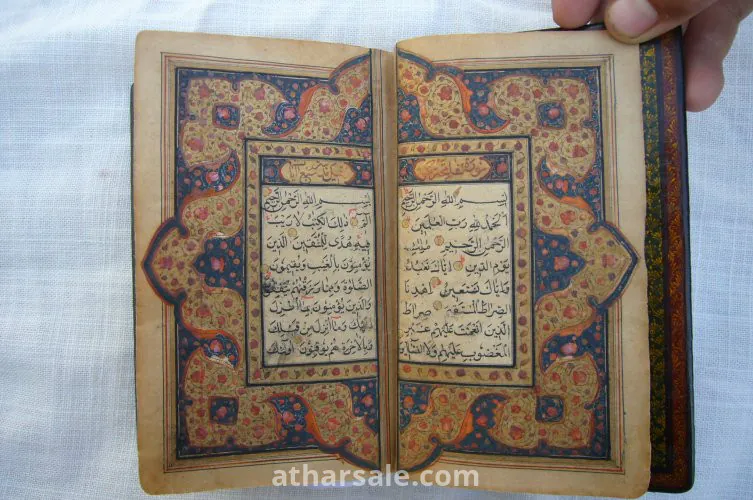 سورة فاتحة
بسم الله الرحمن الرحيم
الحمد لله رب العالمين
الرحمن الرحيم ملك
يوم الدين اياك نعبد
واياك نستعين اهدنا
الصراط المستقيم صراط
الذين انعمت عليهم غير
المغضوب عليهم ولا الضالين
بسم الله الرحمن الرحيم
الم ذلك الكتب لا ريب
فيه هدى للمتقين الذين
يؤمنون بالغيب ويقيمون
الصلوة ومما رزقنهم ينفقون
والذين يؤمنون بما انزل
اليك وما انزل من قبلك
وبالاخرة هم يوقنون اولئك
atharsale.com